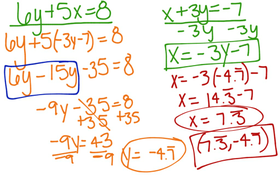 6y+5x=8
6y+5(-3y-7)=8
6y-15y-35=8
-9y-35=8
+35 +35
-9y=43
-9 -9
y= -4.7̅
x+3y=-7
-3y -3y
x=-3y-7
x=-3(-4.7̅)-7
x=14.3̅-7
x=7.3̅
(7.3̅,-4.7̅)